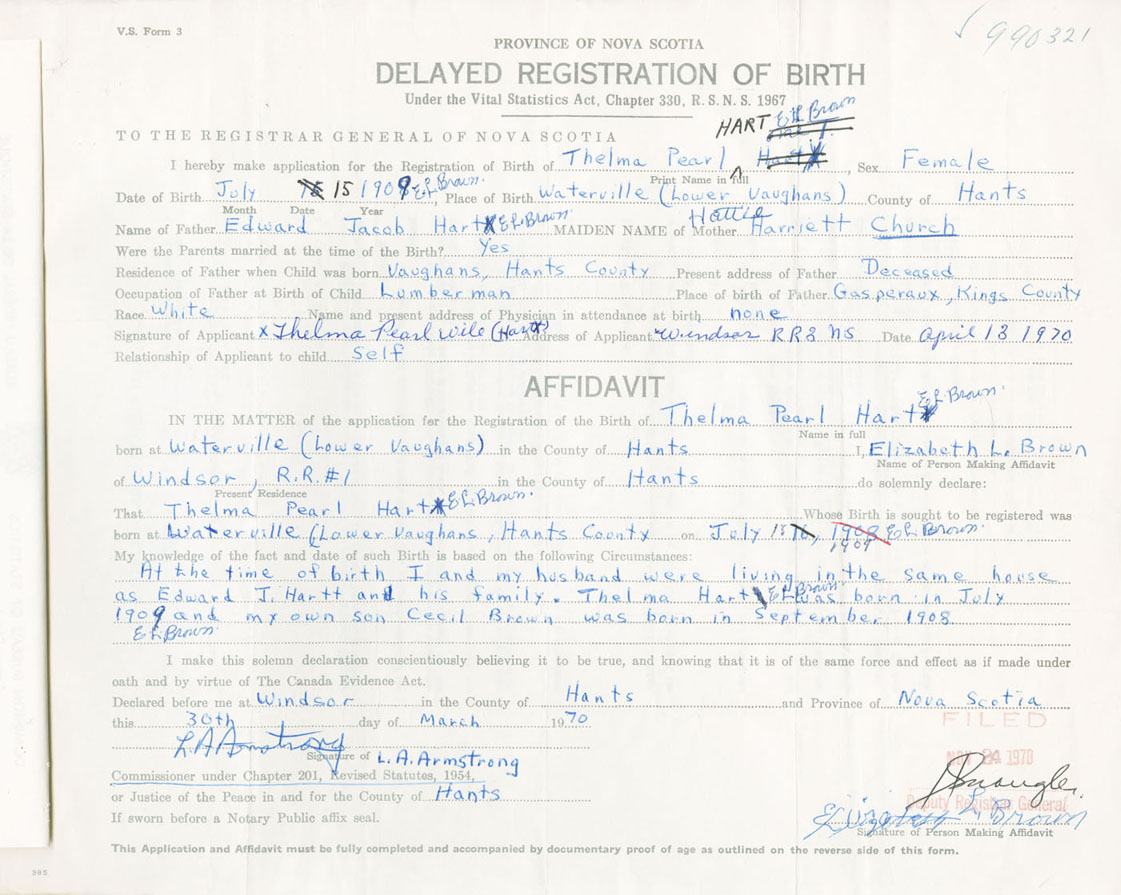 V.S. Form 3
990321
PROVINCE OF NOVA SCOTIA
DELAYED REGISTRATION OF BIRTH
Under the Vital Statistics Act, Chapter 330, R.S.N.S. 1967
HART E.L. Brown
TO THE REGISTRAR GENERAL OF NOVA SCOTIA
I hereby make application for the Registration of Birth of Thelma Pearl Hartt, Sex Female
Print Name in full
Date of Birth July 15 1909 E.L. Brown, Place of Birth Waterville (Lower Vaughans) County of Hants
Month Date Year
Hattie
Name of Father Edward Jacob Hart E.L. Brown MAIDEN NAME of Mother Harriett Church
Were the Parents married at the time of the Birth? Yes
Residence of Father when Child was born Vaughans, Hants County Present address of Father Deceased
Occupation of Father at Birth of Child Lumberman Place of birth of Father Gasperaux, Kings County
Race White Name and present address of Physician in attendance at birth none
Signature of Applicant x Thelma Pearl Wile (Hart) Address of Applicant Windsor RR3 NS Date April 13 1970
Relationship of Applicant to child Self
AFFIDAVIT
E.L. Brown
IN THE MATTER of the application for the Registration of the Birth of Thelma Pearl Hart
Name in full
born at Waterville (Lower Vaughans) in the County of Hants I, Elizabeth L. Brown
Name of Person Making Affidavit
of Windsor, R.R.#1 in the County of Hants do solemnly declare:
Present Residence
That Thelma Pearl Hart E.L. Brown Whose Birth is sought to be registered was
born at Waterville (Lower Vaughans, Hants County on July 15, 1908 E.L. Brown
1909
My knowledge of the fact and date of such Birth is based on the following Circumstances:
At the time of birth I and my husband were living in the same house
as Edward J. Hartt and his family. Thelma Hart E.L. Brown was born in July
1909 and my own son Cecil Brown was born in September 1908
E.L. Brown
I make this solemn declaration conscientiously believing it to be true, and knowing that it is of the same force and effect as if made under
oath and by virtue of The Canada Evidence Act.
Declared before me at Windsor in the County of Hants and Province of Nova Scotia
this 30th day of March 1970
FILED
L.A. Armstrong
Signature of L.A. Armstrong
NOV 24 1970
Commissioner under Chapter 201, Revised Statutes, 1954,
or Justice of the Peace in and for the County of Hants
Deputy Registrar General
If sworn before a Notary Public affix seal.
Elizabeth L. Brown
Signature of Person Making Affidavit
This Application and Affidavit must be fully completed and accompanied by documentary proof of age as outlined on the reverse side of this form.